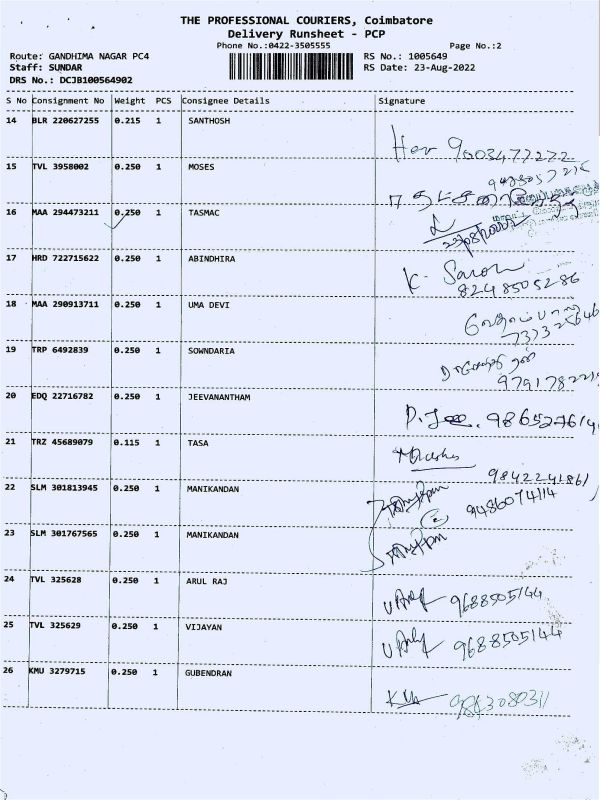 THE PROFESSIONAL COURIERS, Coimbatore
Delivery Runsheet - PCP
Phone No.:0422-3505555 Page No.:2
Route: GANDHIMA NAGAR PC4 RS No.: 1005649
Staff: SUNDAR RS Date: 23-Aug-2022
DRS No.: DCJB100564902
S No Consignment No Weight PCS Consignee Details Signature
14 BLR 220627255 0.215 1 SANTHOSH
9003477222
15 TVL 3958002 0.250 1 MOSES
16 MAA 294473211 0.250 1 TASMAC
17 HRD 722715622 0.250 1 ABINDHIRA
K. Saron
8248505286
18 MAA 290913711 0.250 1 UMA DEVI
19 TRP 6492839 0.250 1 SOWNDARIA
20 EDQ 22716782 0.250 1 JEEVANANTHAM
21 TRZ 45689079 0.115 1 TASA
9842241861
22 SLM 301813945 0.250 1 MANIKANDAN
9486074114
23 SLM 301767565 0.250 1 MANIKANDAN
24 TVL 325628 0.250 1 ARUL RAJ
9688505144
25 TVL 325629 0.250 1 VIJAYAN
9688505144
26 KMU 3279715 0.250 1 GUBENDRAN
9843080311